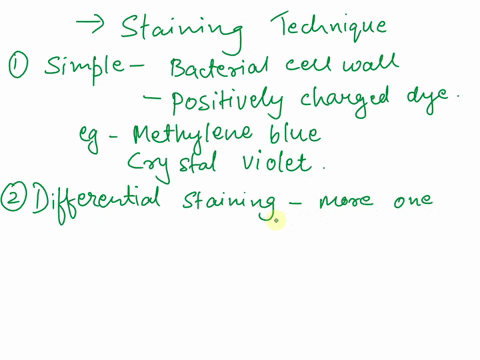 → Staining Technique
① Simple – Bacterial cell wall
– Positively charged dye.
eg – Methylene blue
Crystal violet.
② Differential Staining – more one